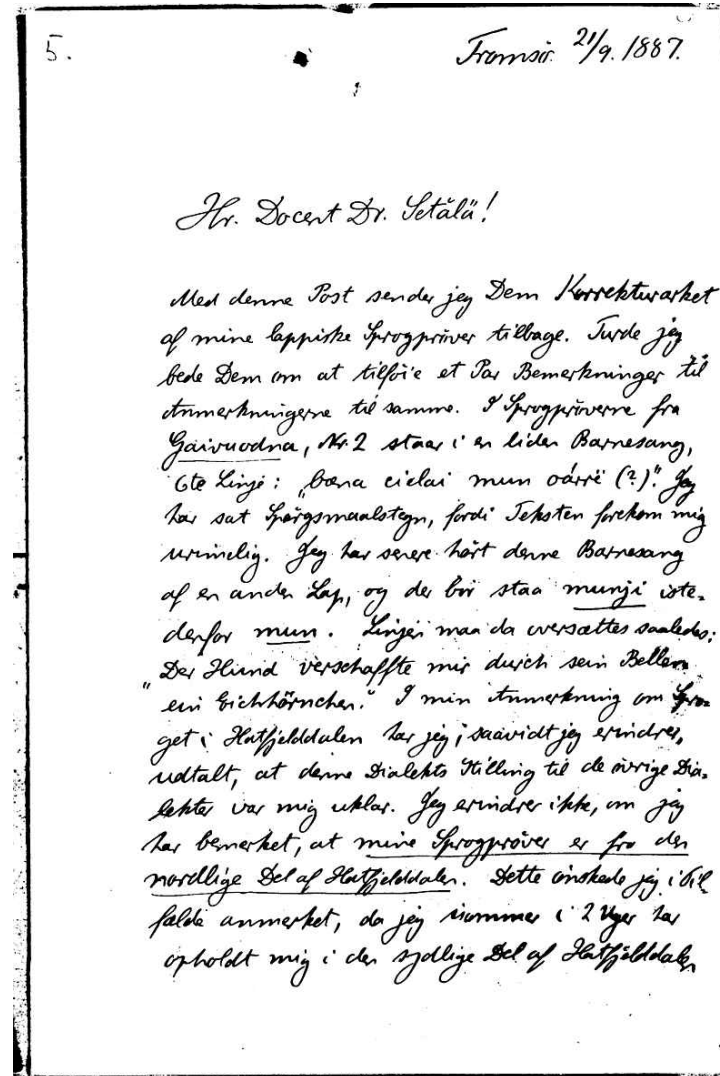 5.
Tromsö. 21/9. 1887.
Hr. Docent Dr. Setälä!
Med denne Post sender jeg Dem Korrekturarket
af mine lappiske Sprogpröver tilbage. Turde jeg
bede Dem om at tilföie et Par Bemerkninger til
Anmerkningerne til samme. I Sprogpröverne fra
Gaivuodna, Nr. 2 staar i en liden Barnesang,
6te Linje: „bæna cielai mun oárrē (?)". Jeg
har sat Spörgsmaalstegn, fordi Teksten forekom mig
urimelig. Jeg har senere hört denne Barnesang
af en anden Lap, og der bör staa munji iste-
denfor mun. Linjen maa da oversættes saaledes:
„Der Hund verschaffte mir durch sein Bellen
ein Eichhörnchen." I min Anmerkning om Spro-
get i Hatfjelddalen har jeg, saavidt jeg erindrer,
udtalt, at denne Dialekts Stilling til de övrige Dia-
lekter var mig uklar. Jeg erindrer ikke, om jeg
har bemerket, at mine Sprogpröver er fra den
nordlige Del af Hatfjelddalen. Dette önskede jeg i Til-
fælde anmerket, da jeg isommer i 2 Uger har
opholdt mig i den sydlige Del af Hatfjelddalen